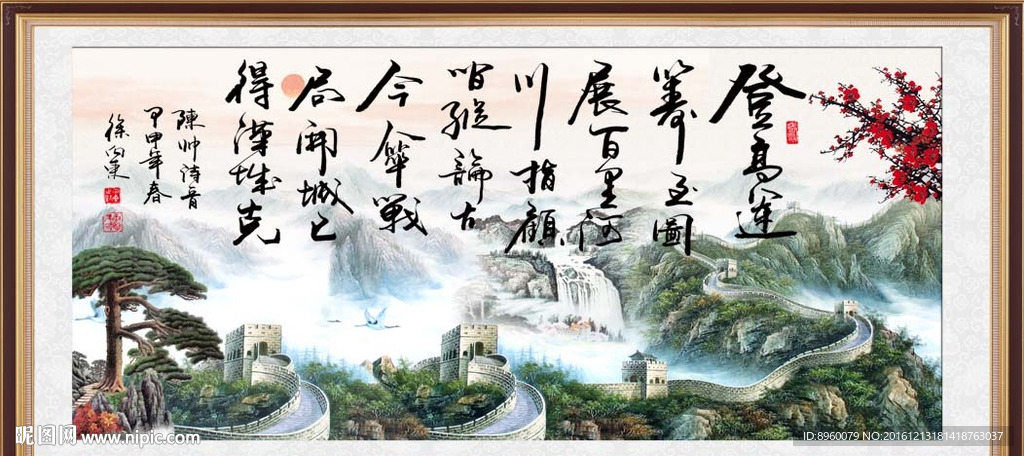 登高運
籌至圖
展百里河
川指顧
間縱論古
今戰
局開城已
得漢城克
陳帥詩
甲申年春
徐向東
昵图网 www.nipic.com
ID:8960079 NO:20161213181418763037